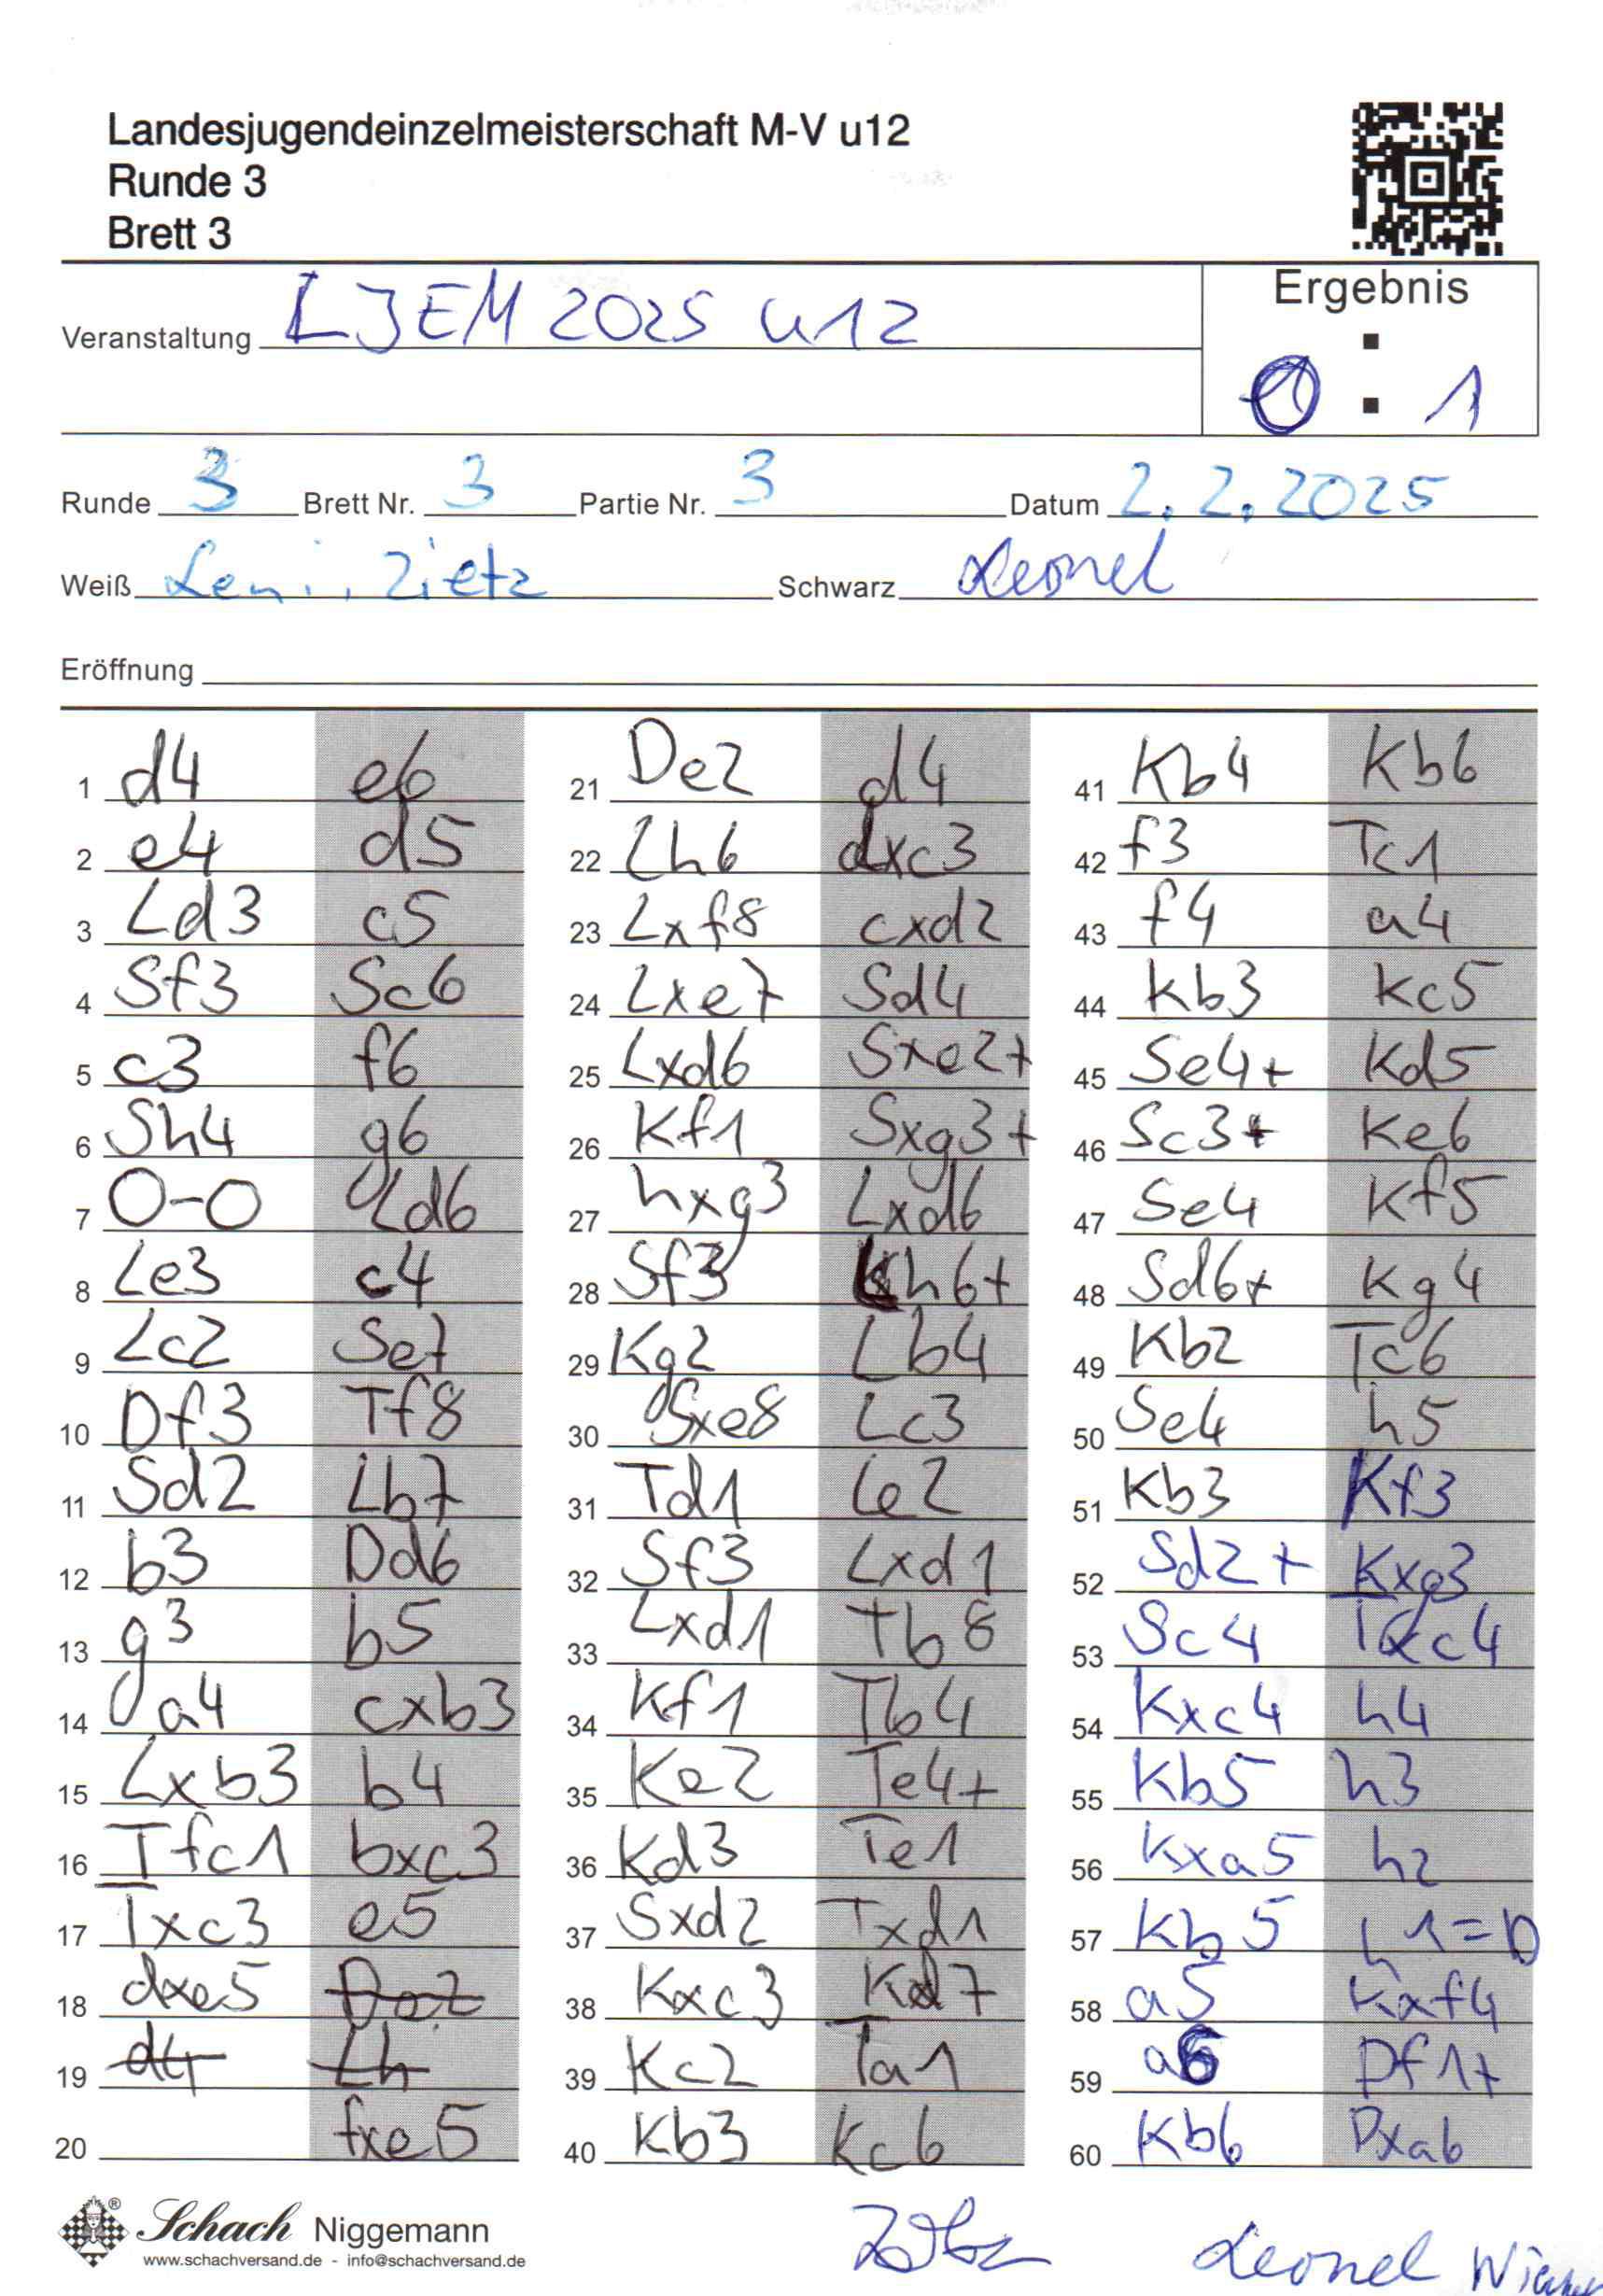 Landesjugendeinzelmeisterschaft M-V u12
Runde 3
Brett 3
Ergebnis
Veranstaltung LJEM 2025 u12
0 : 1
Runde 3 Brett Nr. 3 Partie Nr. 3 Datum 2.2.2025
Weiß Leni, Zietz Schwarz Leonel
Eröffnung
1 d4 e6
2 e4 d5
3 Ld3 c5
4 Sf3 Sc6
5 c3 f6
6 Sh4 g6
7 O-O Ld6
8 Le3 c4
9 Lc2 Se7
10 Df3 Tf8
11 Sd2 Lb7
12 b3 Dd6
13 g3 b5
14 a4 cxb3
15 Lxb3 b4
16 Tfc1 bxc3
17 Txc3 e5
18 dxe5 De7
19 d4 Lh
20 fxe5
21 De2 d4
22 Lh6 dxc3
23 Lxf8 cxd2
24 Lxe7 Sd4
25 Lxd6 Sxe2+
26 Kf1 Sxg3+
27 hxg3 Lxd6
28 Sf3 Lh6+
29 Kg2 Lb4
30 Sxe8 Lc3
31 Td1 Le2
32 Sf3 Lxd1
33 Lxd1 Tb8
34 Kf1 Tb4
35 Ke2 Te4+
36 Kd3 Te1
37 Sxd2 Txd1
38 Kxc3 Kd7
39 Kc2 Ta1
40 Kb3 Kc6
41 Kb4 Kb6
42 f3 Tc1
43 f4 a4
44 Kb3 Kc5
45 Se4+ Kd5
46 Sc3+ Ke6
47 Se4 Kf5
48 Sd6+ Kg4
49 Kb2 Tc6
50 Se4 h5
51 Kb3 Kf3
52 Sd2+ Kxg3
53 Sc4 Txc4
54 Kxc4 h4
55 Kb5 h3
56 Kxa5 h2
57 Kb5 h1=D
58 a5 Kxf4
59 a6 Df1+
60 Kb6 Dxa6
Schach Niggemann
www.schachversand.de - info@schachversand.de
Leonel